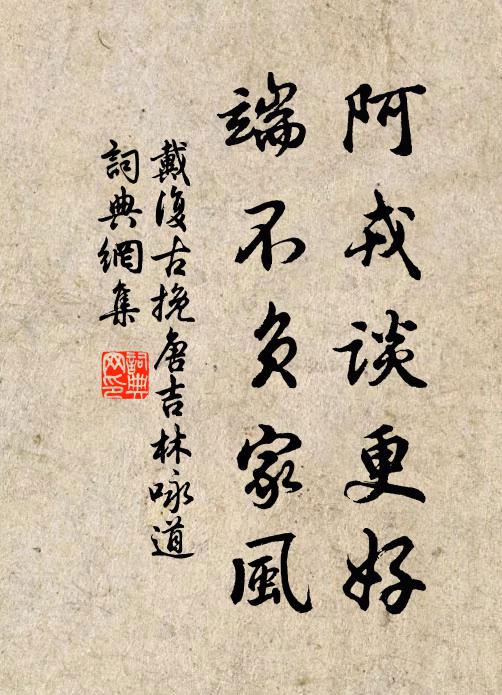 阿戎談更好
端不負家風
戴復古挽唐吉林咏道
詞典網集
詞典網印